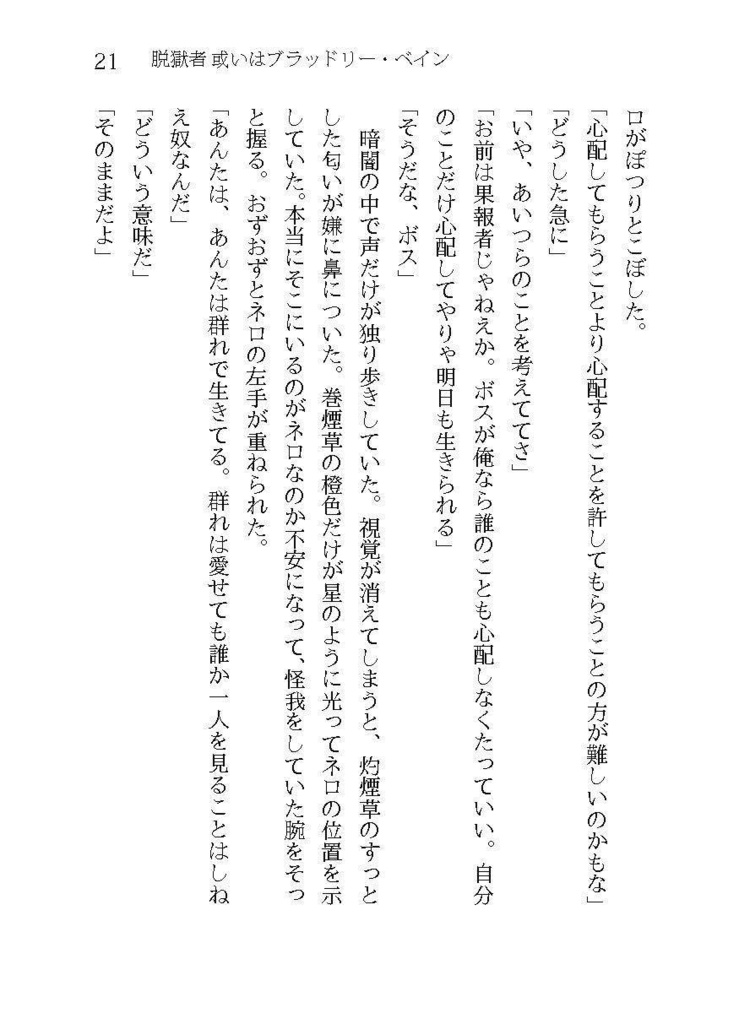 21 脱獄者 或いはブラッドリー・ベイン
ロがぽつりとこぼした。
「心配してもらうことより心配することを許してもらうことの方が難しいのかもな」
「どうした急に」
「いや、あいつらのことを考えててさ」
「お前は果報者じゃねえか。ボスが俺なら誰のことも心配しなくたっていい。自分
のことだけ心配してやりゃ明日も生きられる」
「そうだな、ボス」
　暗闇の中で声だけが独り歩きしていた。視覚が消えてしまうと、灼煙草のすっと
した匂いが嫌に鼻についた。巻煙草の橙色だけが星のように光ってネロの位置を示
していた。本当にそこにいるのがネロなのか不安になって、怪我をしていた腕をそっ
と握る。おずおずとネロの左手が重ねられた。
「あんたは、あんたは群れで生きてる。群れは愛せても誰か一人を見ることはしね
え奴なんだ」
「どういう意味だ」
「そのままだよ」